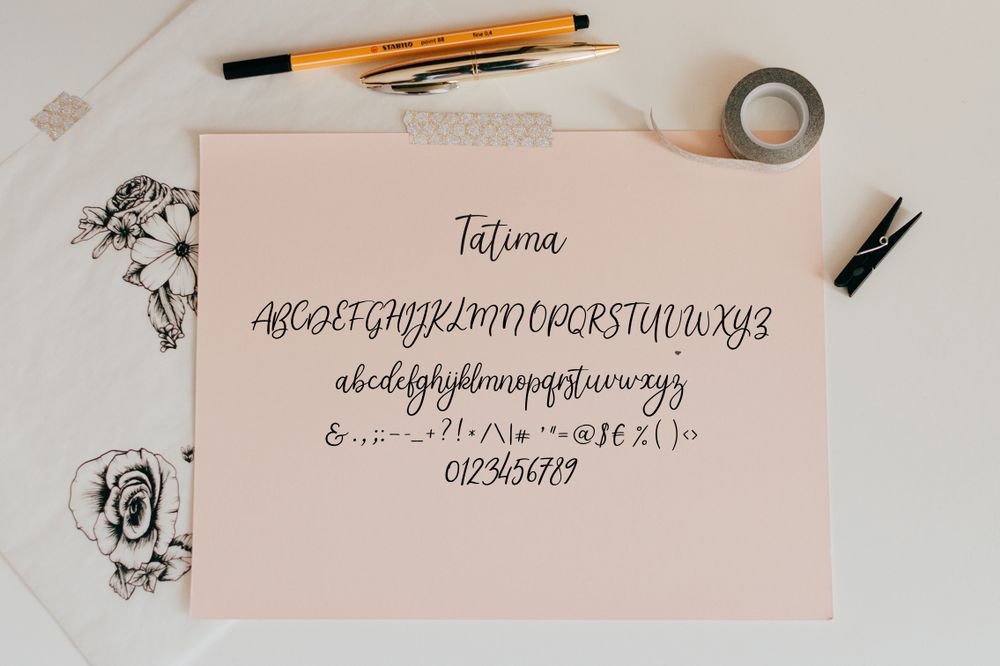 STABILO point 88 fine 0,4
Tatima
ABCDEFGHIJKLMNOPQRSTUVWXYZ
abcdefghijklmnopqrstuvwxyz
&.,;:--_+?!*/\|#'"=@$€%()<>
0123456789